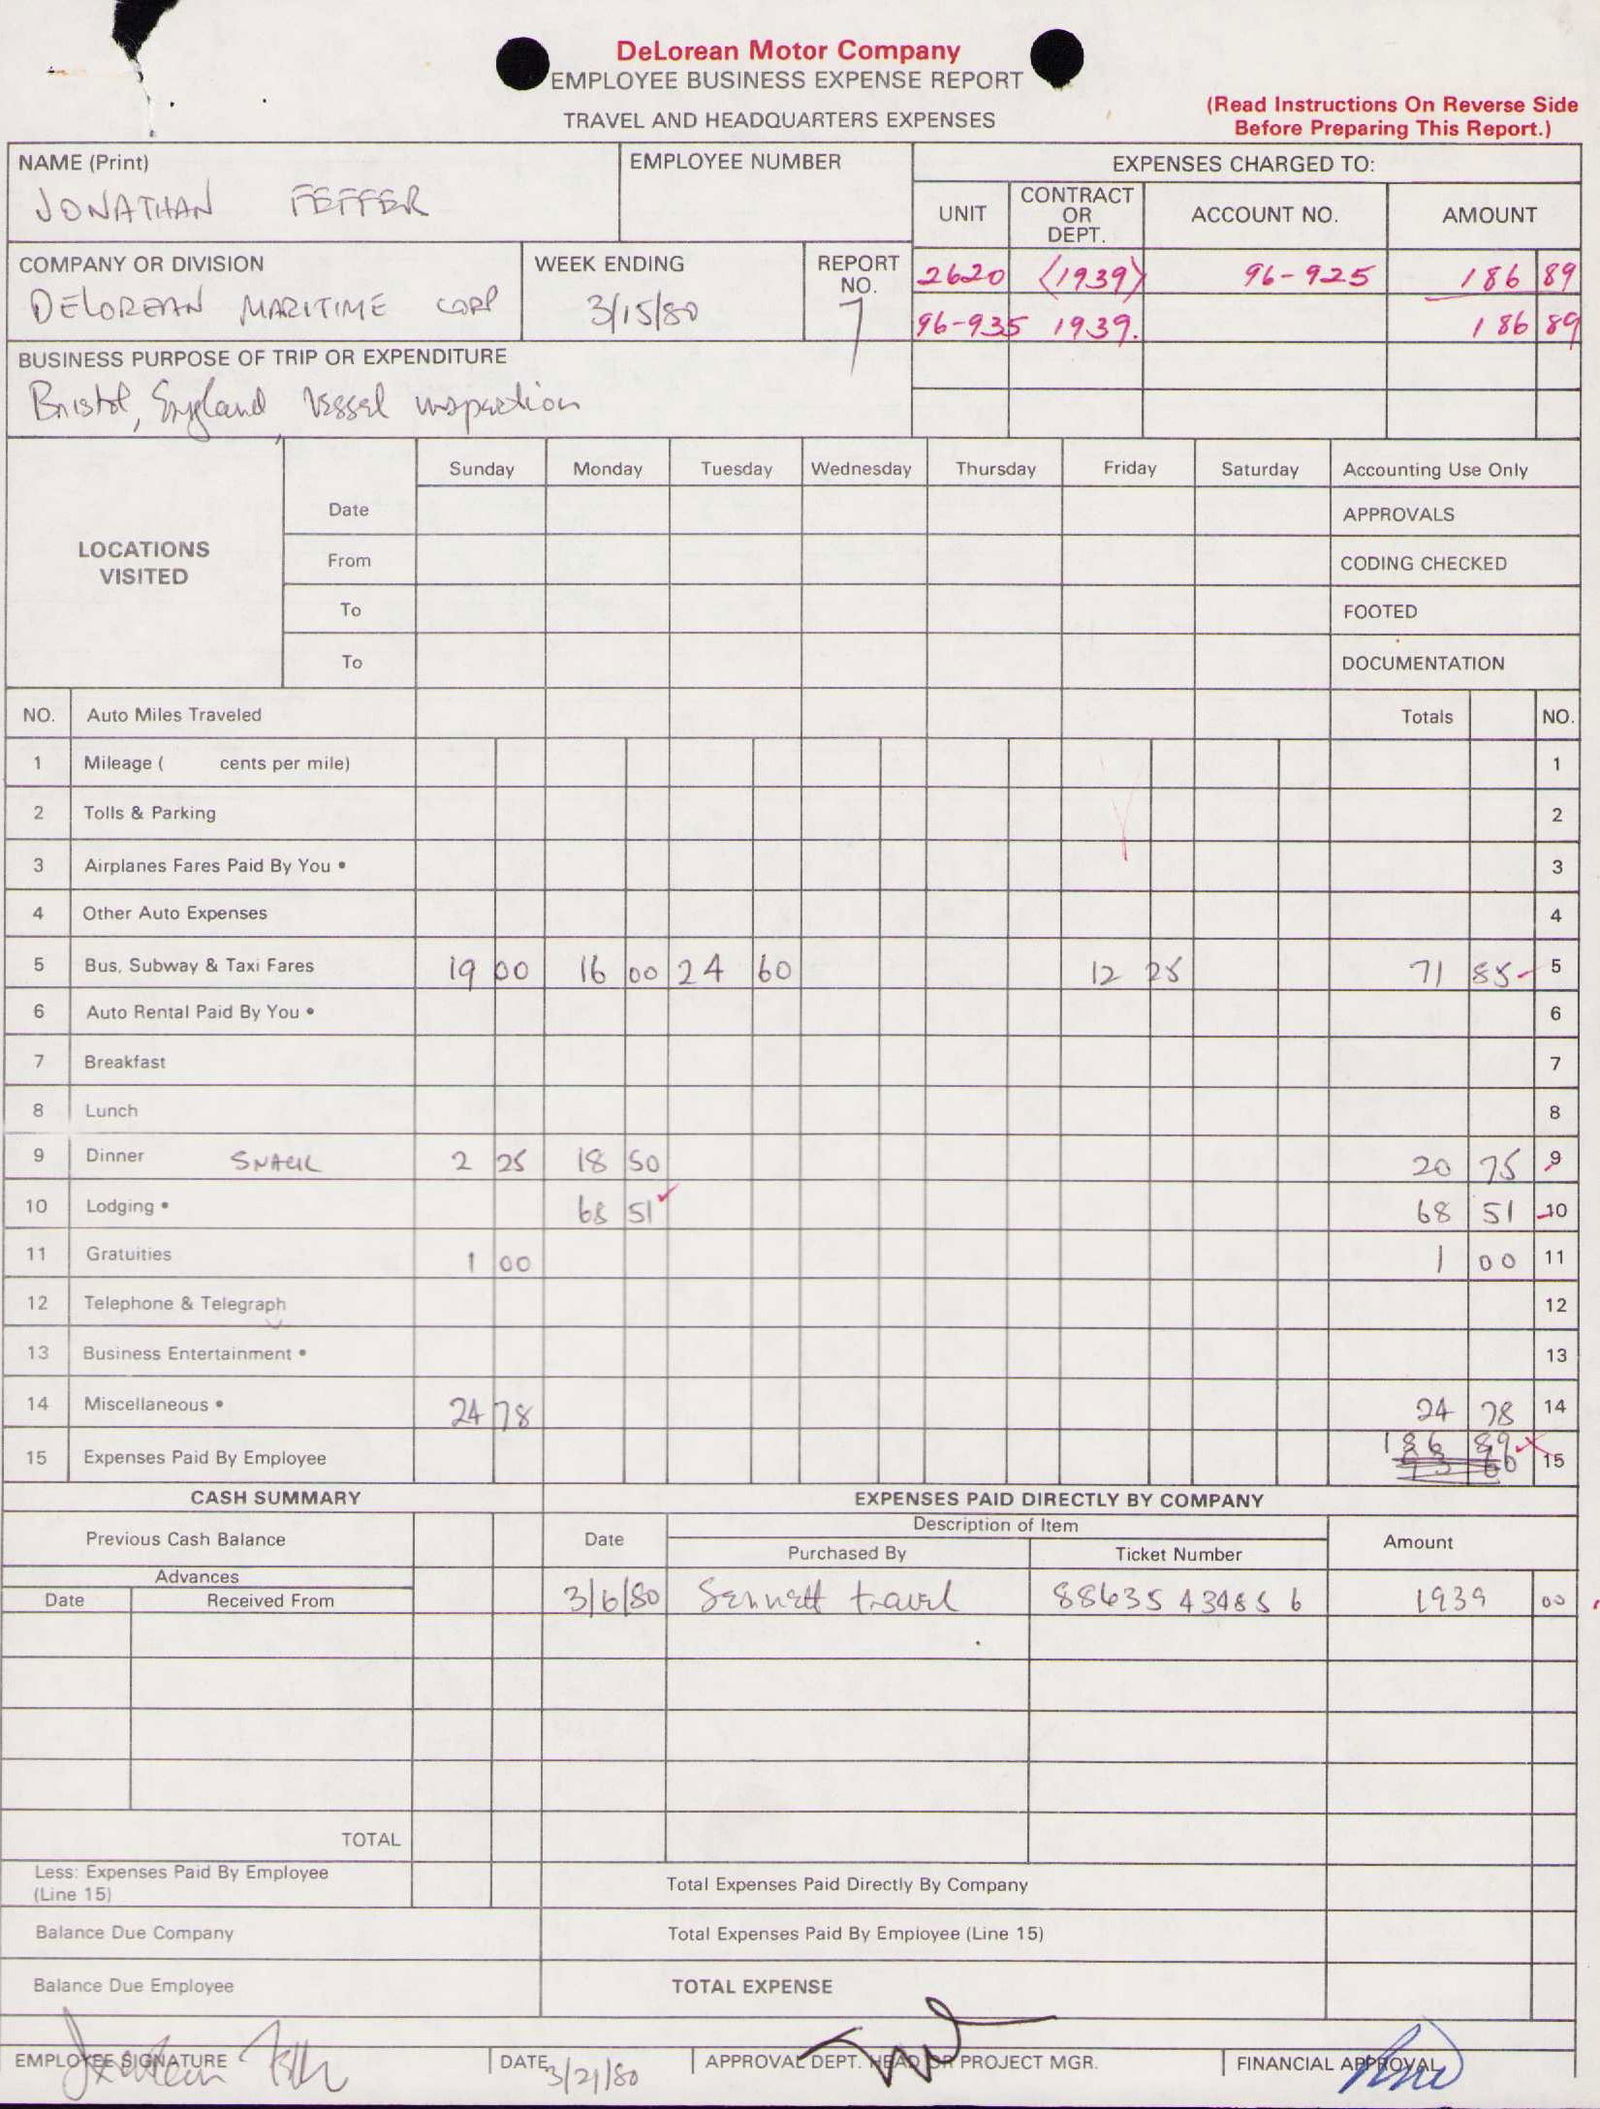 DeLorean Motor Company
EMPLOYEE BUSINESS EXPENSE REPORT
TRAVEL AND HEADQUARTERS EXPENSES
(Read Instructions On Reverse Side
Before Preparing This Report.)
NAME (Print)
JONATHAN FEFFER
EMPLOYEE NUMBER
EXPENSES CHARGED TO:
UNIT
CONTRACT
OR
DEPT.
ACCOUNT NO.
AMOUNT
COMPANY OR DIVISION
DELOREAN MARITIME CORP
WEEK ENDING
3/15/80
REPORT
NO.
7
2620 (1939) 96-925 186 89
96-935 1939. 186 89
BUSINESS PURPOSE OF TRIP OR EXPENDITURE
Bristol, England, Vessel inspection
LOCATIONS
VISITED
Sunday Monday Tuesday Wednesday Thursday Friday Saturday Accounting Use Only
Date APPROVALS
From CODING CHECKED
To FOOTED
To DOCUMENTATION
NO. Auto Miles Traveled Totals NO.
1 Mileage ( cents per mile) 1
2 Tolls & Parking 2
3 Airplanes Fares Paid By You • 3
4 Other Auto Expenses 4
5 Bus, Subway & Taxi Fares 19 00 16 00 24 60 12 25 71 85 5
6 Auto Rental Paid By You • 6
7 Breakfast 7
8 Lunch 8
9 Dinner SNACK 2 25 18 50 20 75 9
10 Lodging • 68 51 68 51 10
11 Gratuities 1 00 1 00 11
12 Telephone & Telegraph 12
13 Business Entertainment • 13
14 Miscellaneous • 24 78 24 78 14
15 Expenses Paid By Employee 186 89 15
CASH SUMMARY
EXPENSES PAID DIRECTLY BY COMPANY
Previous Cash Balance
Date
Description of Item
Purchased By
Ticket Number
Amount
Advances
Date Received From
3/6/80 Sennett travel 88635 434856 1939 00
TOTAL
Less: Expenses Paid By Employee
(Line 15)
Total Expenses Paid Directly By Company
Balance Due Company
Total Expenses Paid By Employee (Line 15)
Balance Due Employee
TOTAL EXPENSE
EMPLOYEE SIGNATURE
DATE
3/21/80
APPROVAL DEPT. HEAD OR PROJECT MGR.
FINANCIAL APPROVAL